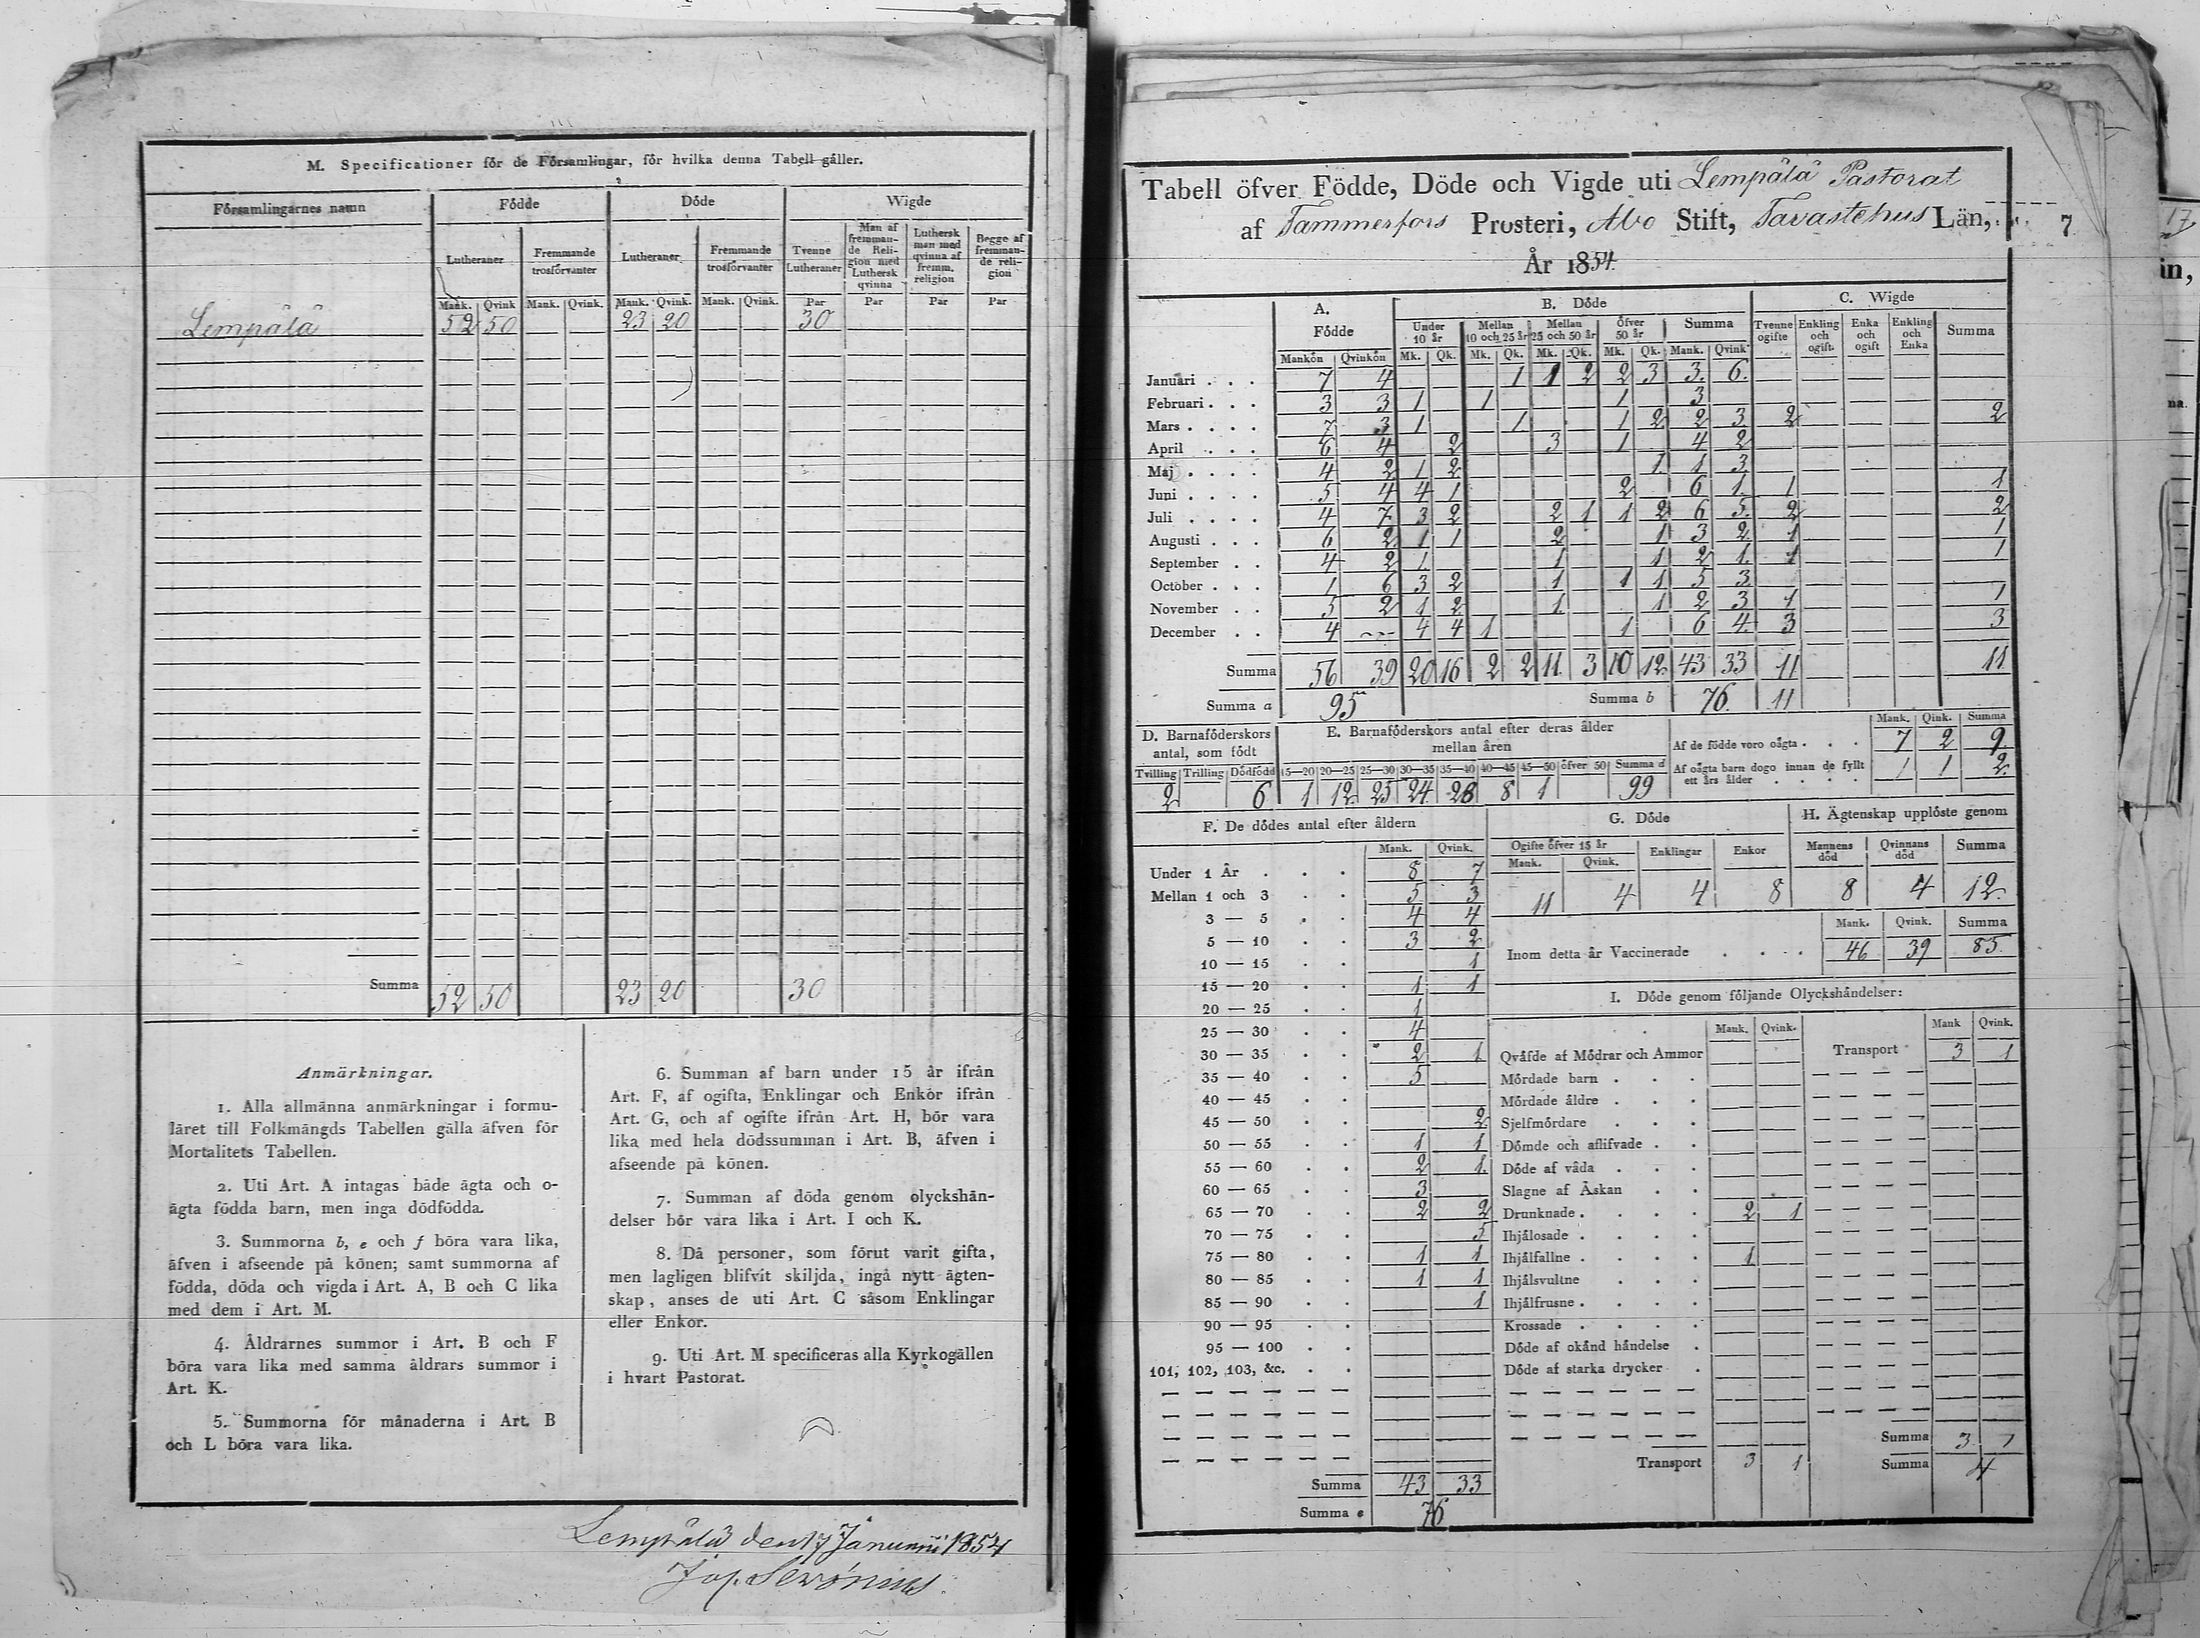 M. Specificationer för de Församlingar, för hvilka denna Tabell gäller.
Församlingarnes namn Födde Döde Wigde
Lutheraner Fremmande trosförvanter Lutheraner Fremmande trosförvanter Tvenne Lutheraner Man af fremmande Religion med Luthersk qvinna Luthersk man med qvinna af fremm. religion Begge af fremmande religion
Mank. Qvink Mank. Qvink. Mank. Qvink. Mank. Qvink. Par Par Par Par
Lempälä 52 50 23 20 30
Summa 52 50 23 20 30
Anmärkningar.
1. Alla allmänna anmärkningar i formu-
läret till Folkmängds Tabellen gälla äfven för
Mortalitets Tabellen.
2. Uti Art. A intagas både ägta och o-
ägta födda barn, men inga dödfödda.
3. Summorna b, e och f böra vara lika,
äfven i afseende på könen; samt summorna af
födda, döda och vigda i Art. A, B och C lika
med dem i Art. M.
4. Åldrarnes summor i Art. B och F
böra vara lika med samma åldrars summor i
Art. K.
5. Summorna för månaderna i Art. B
och L böra vara lika.
6. Summan af barn under 15 år ifrån
Art. F, af ogifta, Enklingar och Enkor ifrån
Art. G, och af ogifte ifrån Art. H, bör vara
lika med hela dödssumman i Art. B, äfven i
afseende på könen.
7. Summan af döda genom olyckshän-
delser bör vara lika i Art. I och K.
8. Då personer, som förut varit gifta,
men lagligen blifvit skiljda, ingå nytt ägten-
skap, anses de uti Art. C såsom Enklingar
eller Enkor.
9. Uti Art. M specificeras alla Kyrkogällen
i hvart Pastorat.
Lempälä den 17 Januari 1854
Tabell öfver Födde, Döde och Vigde uti Lempälä Pastorat
af Tammerfors Prosteri, Åbo Stift, Tavastehus Län, 7
År 1854.
A. Födde B. Döde C. Wigde
Under 10 år Mellan 10 och 25 år Mellan 25 och 50 år Öfver 50 år Summa Tvenne ogifte Enkling och ogift. Enka och ogift Enkling och Enka Summa
Mankön Qvinkön Mk. Qk. Mk. Qk. Mk. Qk. Mk. Qk. Mank. Qvink
Januari 7 4 1 1 2 2 3 3. 6.
Februari 3 3 1 1 1 3
Mars 7 3 1 1 1 2 2 3 2 2
April 6 4 2 3 1 4 2
Maj 4 2 1 2 1 1 3
Juni 5 4 4 1 2 6 1 1 1
Juli 4 7 3 2 2 1 1 2 6 5 2 2
Augusti 6 2 1 1 2 1 3 2 1 1
September 4 2 1 1 1 2 1 1 1
October 1 6 3 2 1 1 1 5 3
November 5 2 1 2 1 1 2 3 1 1
December 4 -- 4 4 1 1 6 4 3 3
Summa 56 39 20 16 2 2 11 3 10 12 43 33 11 11
Summa a 95 Summa b 76 11
D. Barnaföderskors antal, som födt
Tvilling Trilling Dödfödd
2 6
E. Barnaföderskors antal efter deras ålder
mellan åren
15—20 20—25 25—30 30—35 35—40 40—45 45—50 öfver 50 Summa d
1 12 25 24 28 8 1 99
Mank. Qink. Summa
Af de födde voro oägta 7 2 9
Af oägta barn dogo innan de fyllt
ett års ålder 1 1 2
F. De dödes antal efter åldern
Mank. Qvink.
Under 1 År 8 7
Mellan 1 och 3 5 3
3 — 5 4 4
5 — 10 3 2
10 — 15 1
15 — 20 1 1
20 — 25 1
25 — 30 4
30 — 35 2 1
35 — 40 5
40 — 45
45 — 50 2
50 — 55 1 1
55 — 60 2 1
60 — 65 3
65 — 70 2 2
70 — 75 5
75 — 80 1 1
80 — 85 1 1
85 — 90 1
90 — 95
95 — 100
101, 102, 103, &c.
Summa 43 33
Summa e 76
G. Döde
Ogifte öfver 15 år Enklingar Enkor
Mank. Qvink.
11 4 4 8
H. Ägtenskap upplöste genom
Mannens död Qvinnans död Summa
8 4 12
Mank. Qvink. Summa
Inom detta år Vaccinerade 46 39 85
I. Döde genom följande Olyckshändelser:
Mank. Qvink. Mank Qvink.
Qväfde af Mödrar och Ammor Transport 3 1
Mördade barn
Mördade äldre
Sjelfmördare
Dömde och aflifvade
Döde af våda
Slagne af Åskan
Drunknade 2 1
Ihjälosade
Ihjälfallne 1
Ihjälsvultne
Ihjälfrusne
Krossade
Döde af okänd händelse
Döde af starka drycker
Summa 3 1
Transport 3 1 Summa 4